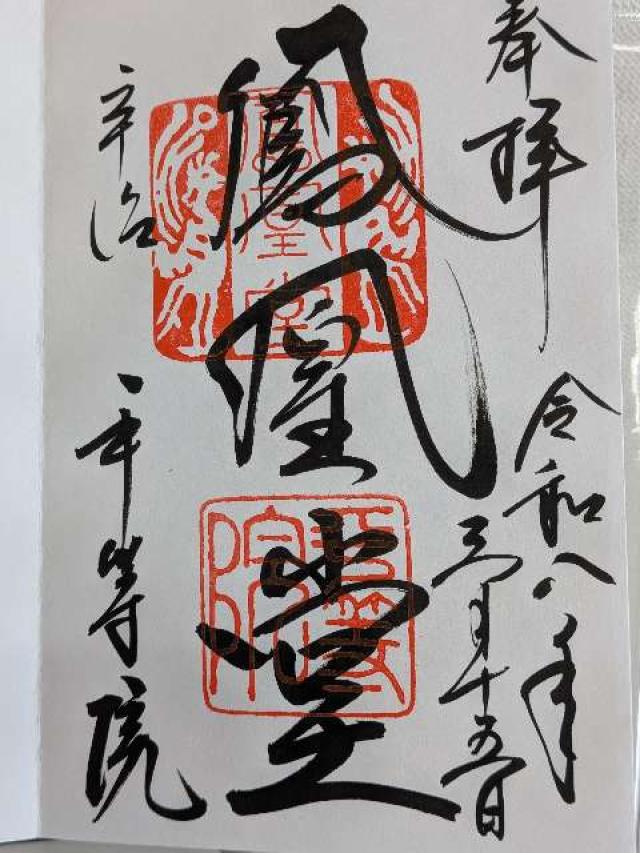 奉拝
令和八年
三月十五日
鳳凰堂
宇治
平等院
鳳凰堂
平等院